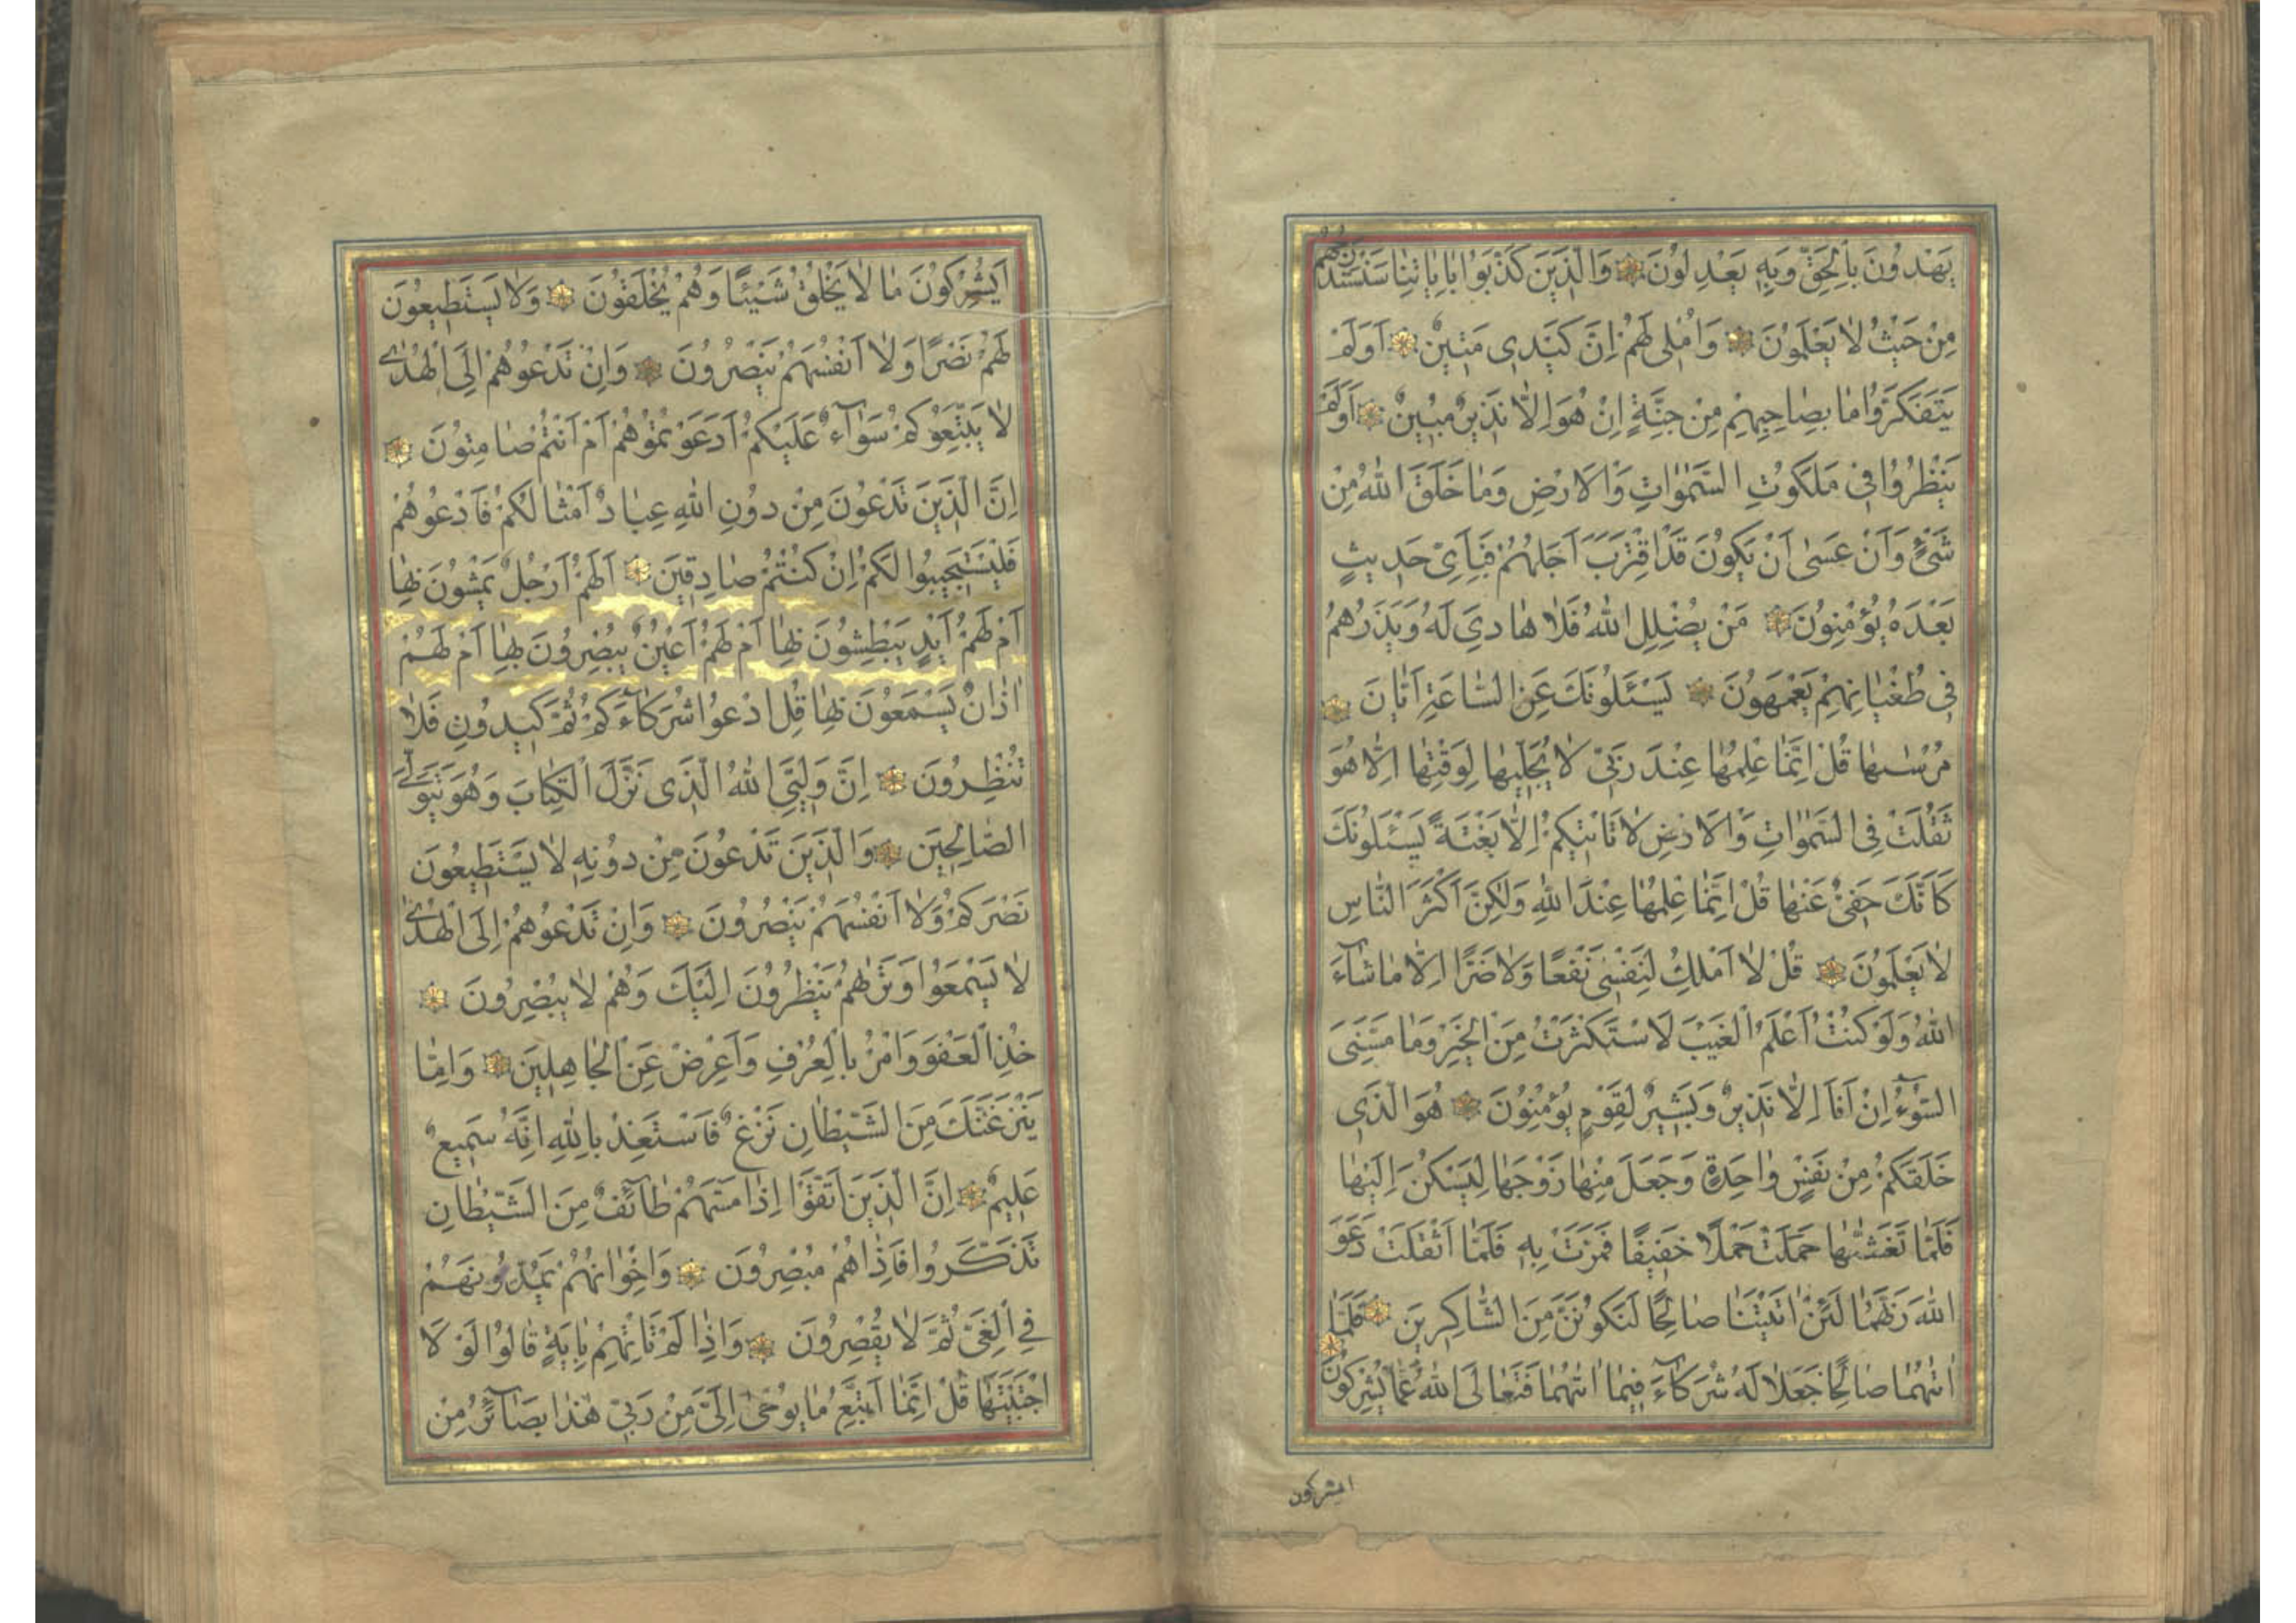 يَهْدُونَ بِالْحَقِّ وَبِهِ يَعْدِلُونَ وَالَّذِينَ كَذَّبُوا بِاٰيَاتِنَا سَنَسْتَدْرِجُهُمْ
مِنْ حَيْثُ لَا يَعْلَمُونَ وَاُمْلِى لَهُمْ اِنَّ كَيْدِى مَتِينٌ اَوَلَمْ
يَتَفَكَّرُوا مَا بِصَاحِبِهِمْ مِنْ جِنَّةٍ اِنْ هُوَ اِلَّا نَذِيرٌ مُبِينٌ اَوَلَمْ
يَنْظُرُوا فِى مَلَكُوتِ السَّمٰوَاتِ وَالْاَرْضِ وَمَا خَلَقَ اللّٰهُ مِنْ
شَىْءٍ وَاَنْ عَسٰى اَنْ يَكُونَ قَدِ اقْتَرَبَ اَجَلُهُمْ فَبِاَىِّ حَدِيثٍ
بَعْدَهُ يُؤْمِنُونَ مَنْ يُضْلِلِ اللّٰهُ فَلَا هَادِىَ لَهُ وَيَذَرُهُمْ
فِى طُغْيَانِهِمْ يَعْمَهُونَ يَسْئَلُونَكَ عَنِ السَّاعَةِ اَيَّانَ
مُرْسٰيهَا قُلْ اِنَّمَا عِلْمُهَا عِنْدَ رَبِّى لَا يُجَلِّيهَا لِوَقْتِهَا اِلَّا هُوَ
ثَقُلَتْ فِى السَّمٰوَاتِ وَالْاَرْضِ لَا تَاْتِيكُمْ اِلَّا بَغْتَةً يَسْئَلُونَكَ
كَاَنَّكَ حَفِىٌّ عَنْهَا قُلْ اِنَّمَا عِلْمُهَا عِنْدَ اللّٰهِ وَلٰكِنَّ اَكْثَرَ النَّاسِ
لَا يَعْلَمُونَ قُلْ لَا اَمْلِكُ لِنَفْسِى نَفْعًا وَلَا ضَرًّا اِلَّا مَا شَآءَ
اللّٰهُ وَلَوْ كُنْتُ اَعْلَمُ الْغَيْبَ لَاسْتَكْثَرْتُ مِنَ الْخَيْرِ وَمَا مَسَّنِىَ
السُّوٓءُ اِنْ اَنَا اِلَّا نَذِيرٌ وَبَشِيرٌ لِقَوْمٍ يُؤْمِنُونَ هُوَ الَّذِى
خَلَقَكُمْ مِنْ نَفْسٍ وَاحِدَةٍ وَجَعَلَ مِنْهَا زَوْجَهَا لِيَسْكُنَ اِلَيْهَا
فَلَمَّا تَغَشّٰيهَا حَمَلَتْ حَمْلًا خَفِيفًا فَمَرَّتْ بِهِ فَلَمَّا اَثْقَلَتْ دَعَوَ
اللّٰهَ رَبَّهُمَا لَئِنْ اٰتَيْتَنَا صَالِحًا لَنَكُونَنَّ مِنَ الشَّاكِرِينَ فَلَمَّا
اٰتٰيهُمَا صَالِحًا جَعَلَا لَهُ شُرَكَآءَ فِيمَا اٰتٰيهُمَا فَتَعَالَى اللّٰهُ عَمَّا يُشْرِكُونَ
ايشركون
اَيُشْرِكُونَ مَا لَا يَخْلُقُ شَيْئًا وَهُمْ يُخْلَقُونَ وَلَا يَسْتَطِيعُونَ
لَهُمْ نَصْرًا وَلَا اَنْفُسَهُمْ يَنْصُرُونَ وَاِنْ تَدْعُوهُمْ اِلَى الْهُدٰى
لَا يَتَّبِعُوكُمْ سَوَآءٌ عَلَيْكُمْ اَدَعَوْتُمُوهُمْ اَمْ اَنْتُمْ صَامِتُونَ
اِنَّ الَّذِينَ تَدْعُونَ مِنْ دُونِ اللّٰهِ عِبَادٌ اَمْثَالُكُمْ فَادْعُوهُمْ
فَلْيَسْتَجِيبُوا لَكُمْ اِنْ كُنْتُمْ صَادِقِينَ اَلَهُمْ اَرْجُلٌ يَمْشُونَ بِهَا
اَمْ لَهُمْ اَيْدٍ يَبْطِشُونَ بِهَا اَمْ لَهُمْ اَعْيُنٌ يُبْصِرُونَ بِهَا اَمْ لَهُمْ
اٰذَانٌ يَسْمَعُونَ بِهَا قُلِ ادْعُوا شُرَكَآءَكُمْ ثُمَّ كِيدُونِ فَلَا
تُنْظِرُونَ اِنَّ وَلِيِّىَ اللّٰهُ الَّذِى نَزَّلَ الْكِتَابَ وَهُوَ يَتَوَلَّى
الصَّالِحِينَ وَالَّذِينَ تَدْعُونَ مِنْ دُونِهِ لَا يَسْتَطِيعُونَ
نَصْرَكُمْ وَلَا اَنْفُسَهُمْ يَنْصُرُونَ وَاِنْ تَدْعُوهُمْ اِلَى الْهُدٰى
لَا يَسْمَعُوا وَتَرٰيهُمْ يَنْظُرُونَ اِلَيْكَ وَهُمْ لَا يُبْصِرُونَ
خُذِ الْعَفْوَ وَاْمُرْ بِالْعُرْفِ وَاَعْرِضْ عَنِ الْجَاهِلِينَ وَاِمَّا
يَنْزَغَنَّكَ مِنَ الشَّيْطَانِ نَزْغٌ فَاسْتَعِذْ بِاللّٰهِ اِنَّهُ سَمِيعٌ
عَلِيمٌ اِنَّ الَّذِينَ اتَّقَوْا اِذَا مَسَّهُمْ طَآئِفٌ مِنَ الشَّيْطَانِ
تَذَكَّرُوا فَاِذَا هُمْ مُبْصِرُونَ وَاِخْوَانُهُمْ يَمُدُّونَهُمْ
فِى الْغَىِّ ثُمَّ لَا يُقْصِرُونَ وَاِذَا لَمْ تَاْتِهِمْ بِاٰيَةٍ قَالُوا لَوْلَا
اجْتَبَيْتَهَا قُلْ اِنَّمَا اَتَّبِعُ مَا يُوحٰى اِلَىَّ مِنْ رَبِّى هٰذَا بَصَآئِرُ مِنْ